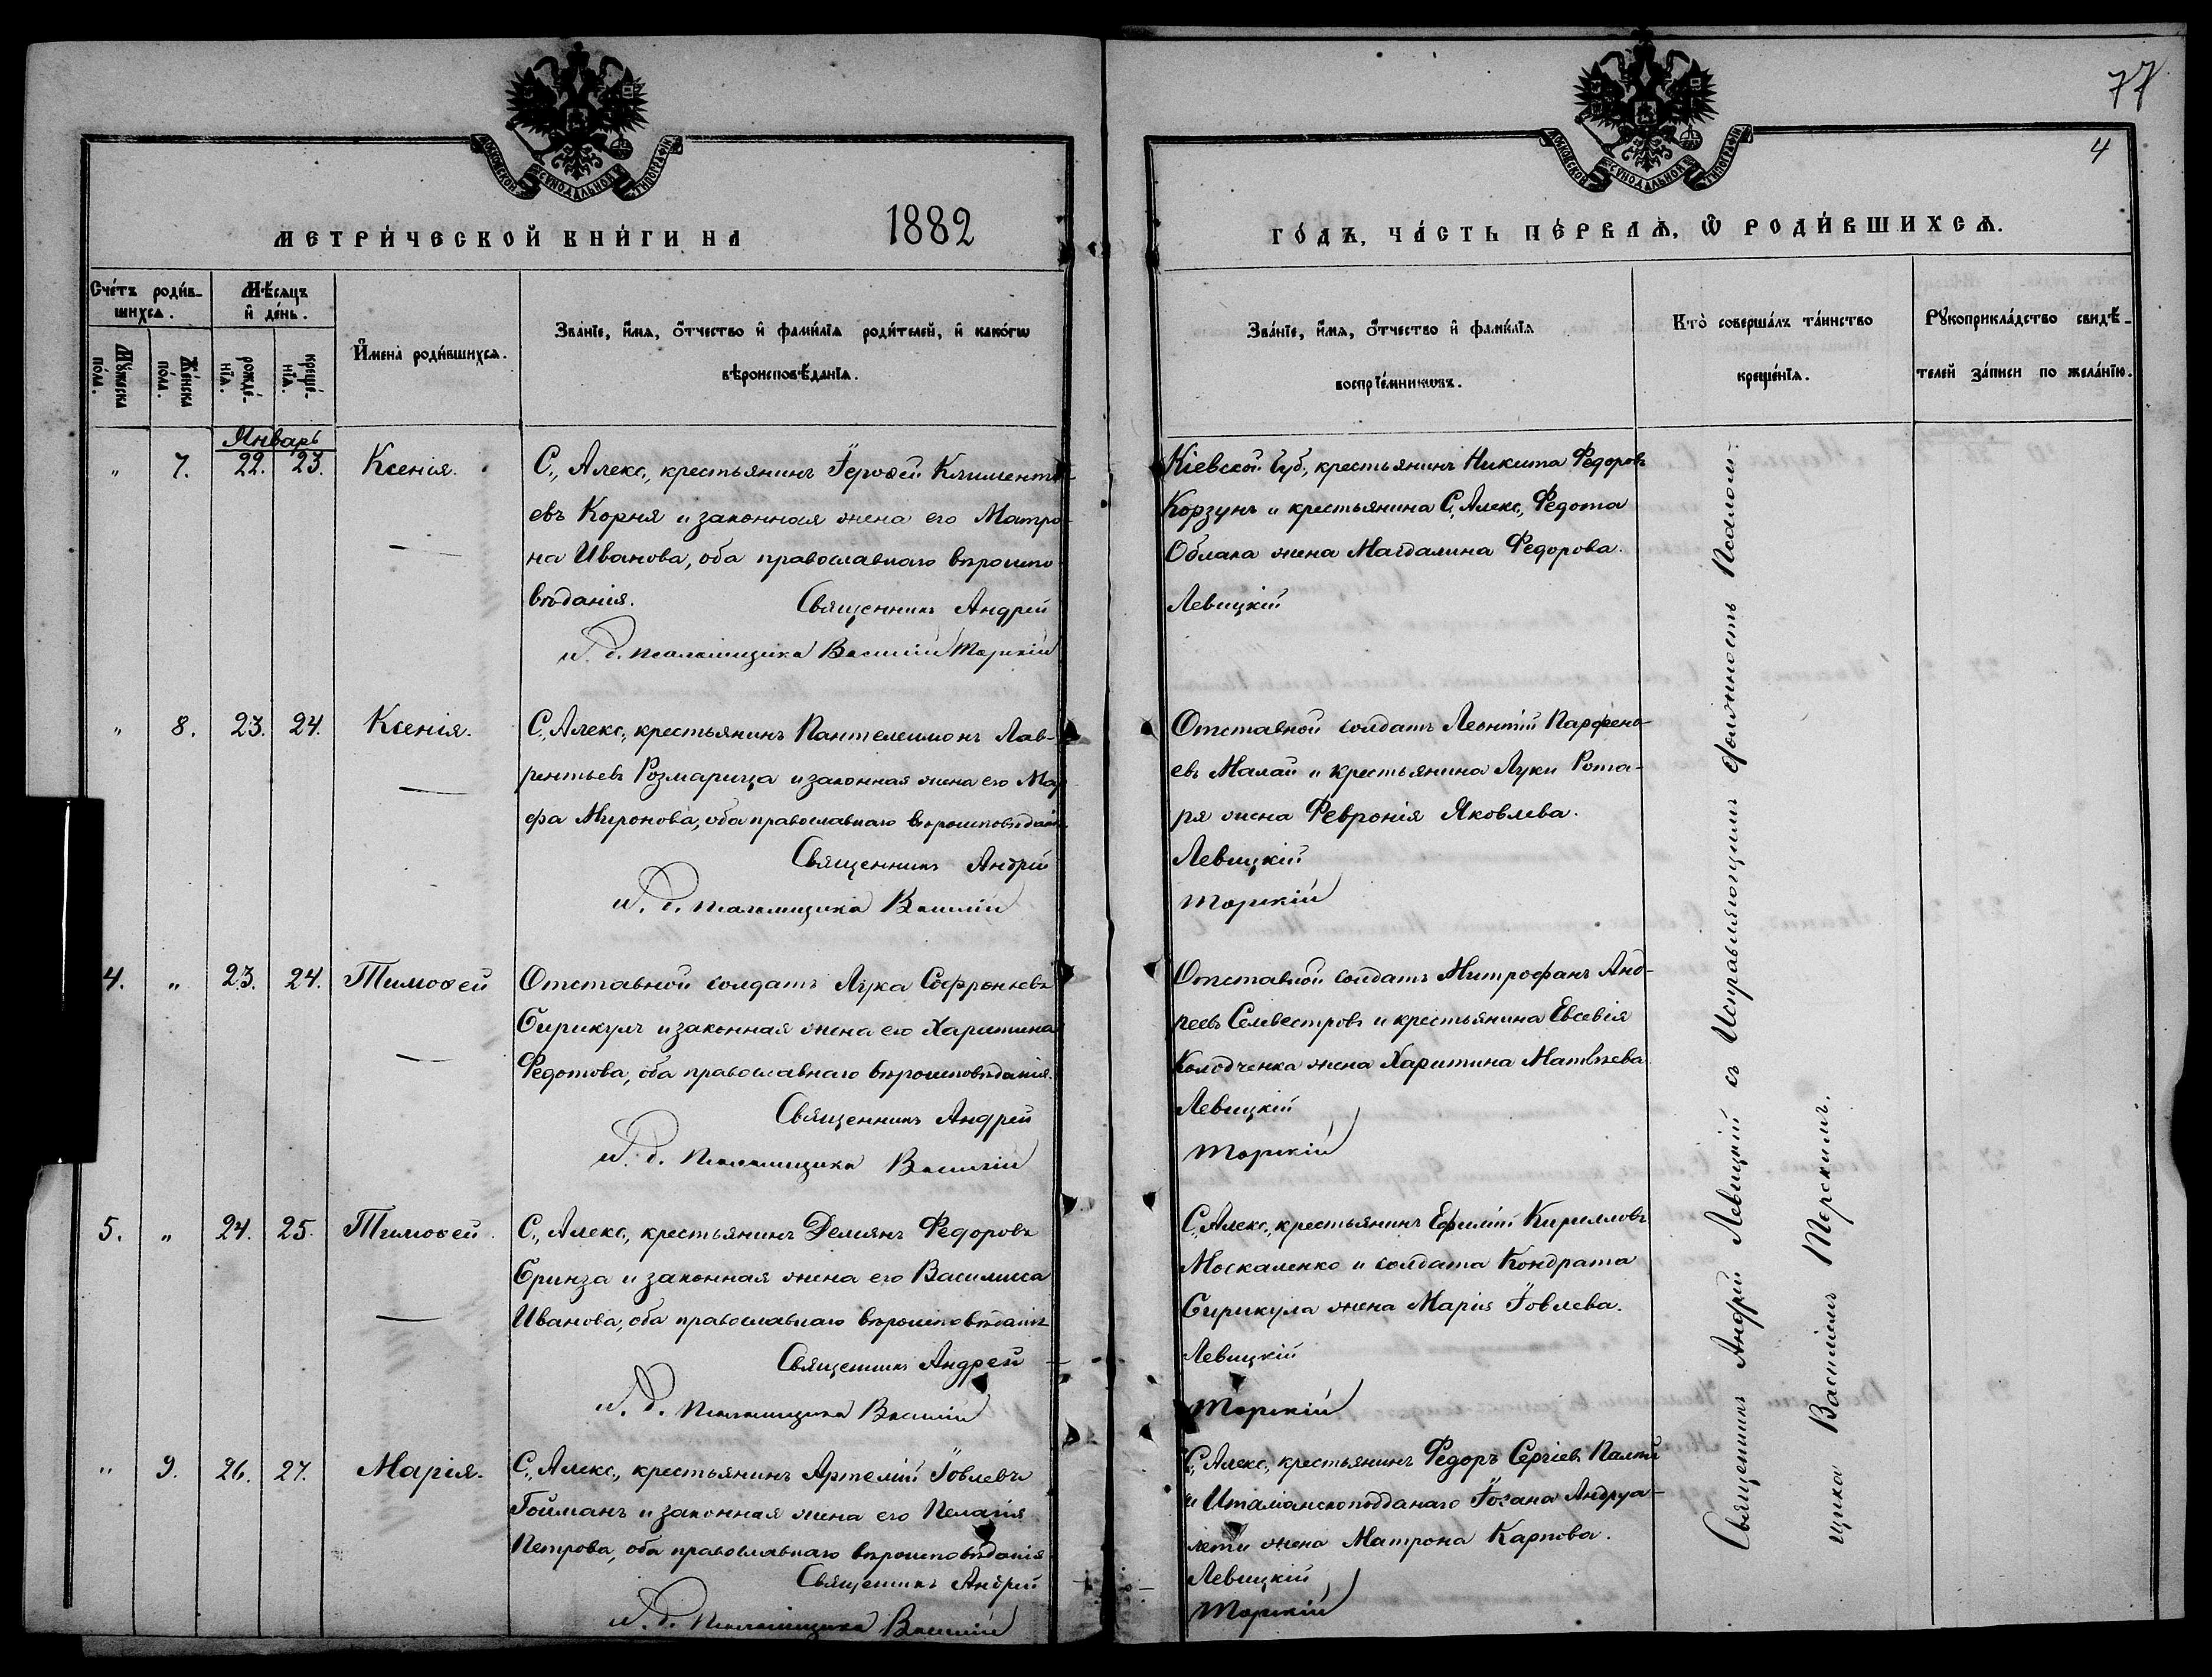 77
4
МОСКОВСКОЙ СѴНОДАЛЬНОЙ ТИПОГРАФІИ
МОСКОВСКОЙ СѴНОДАЛЬНОЙ ТИПОГРАФІИ
МЕТРИ́ЧЕСКОЙ КНИ́ГИ НА 1882
ГО́ДЪ, ЧА́СТЬ ПЕ́РВАѦ, Ѡ҆ РОДИ́ВШИХСѦ.
Сче́тъ роди́в-
шихсѧ.
Мꙋ́жеска по́ла.
Же́нска по́ла.
Мѣ́сѧцъ
и҆ де́нь.
рожде́-
нїѧ.
креще́-
нїѧ.
И҆мена̀ роди́вшихсѧ.
Зва́нїе, и҆́мѧ, ѻ҆́тчество и҆ фами́лїѧ роди́телей, и҆ како́гѡ
вѣроисповѣ́данїѧ.
Зва́нїе, и҆́мѧ, ѻ҆́тчество и҆ фами́лїѧ
воспрїе́мникѡвъ.
Кто̀ соверша́лъ та́инство
креще́нїѧ.
Рꙋкоприкла́дство свидѣ́-
телей за́писи по жела́нїю.
Январь
" 7. 22. 23. Ксенія.
С., Алекс., крестьянинъ Іерофей Климентi-
евъ Корня и законная жена его Матро-
на Иванова, оба православнаго вѣроиспо-
вѣданія.
Священникъ Андрей
и. д. псаломщика Василій Торскій
Кіевской губ., крестьянинъ Никита Федоровъ
Корзунъ и крестьянина С. Алекс., Федота
Облака жена Магдалина Федорова.
Левицкій
" 8. 23. 24. Ксенія.
С., Алекс., крестьянинъ Пантелеимонъ Лав-
рентьевъ Розмарица и законная жена его Мар-
фа Миронова, оба православнаго вѣроисповѣданія
Священникъ Андрей
и. д. псаломщика Василій
Отставной солдатъ Леонтій Парфень-
евъ Малай и крестьянина Луки Рота-
ря жена Февронія Яковлева.
Левицкій
Торскій
4. " 23. 24. Тимофей
Отставной солдатъ Лука Софроньевъ
Бирикулъ и законная жена его Харитина
Федотова, оба православнаго вѣроисповѣданія.
Священникъ Андрей
и. д. псаломщика Василій
Отставной солдатъ Митрофанъ Анд-
реевъ Селивестровъ и крестьянина Евсевія
Колодченка жена Харитина Матвѣева.
Левицкій
Торскій
5. " 24. 25. Тимофей.
С., Алекс., крестьянинъ Демянъ Федоровъ
Бринза и законная жена его Василиса
Иванова, оба православнаго вѣроисповѣданія
Священникъ Андрей
и. д. псаломщика Василій
С., Алекс., крестьянинъ Ефимій Кирилловъ
Москаленко и солдата Кондрата
Бирикула жена Марія Іовлева.
Левицкій
Торскій
" 9. 26. 27. Марія.
С., Алекс., крестьянинъ Артемій Іовлевъ
Гойманъ и законная жена его Пелагія
Петрова, оба православнаго вѣроисповѣданія
Священникъ Андрей
и. д. псаломщика Василій
С., Алекс., крестьянинъ Федоръ Сергіевъ
и Италіанскоподданаго Іогана Андруа-
лети жена Матрона Карпова.
Левицкій
Торскій
Священникъ Андрей Левицкій съ Исправляющимъ должность Псалом-
щика Василіемъ Торскимъ.